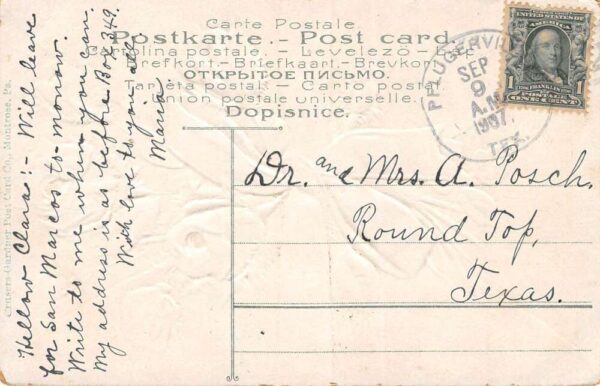 Carte Postale.
Postkarte. - Post card.
Cartolina postale. - Levelező-
Brefkort. - Briefkaart. - Brevkor
ОТКРЫТОЕ ПИСЬМО.
Tarjeta postal. - Carto postal.
Union postale universelle.
Dopisnice.
PFLUGERVI
SEP
9
A.M.
1907
TEX.
UNITED STATES OF AMERICA
FRANKLIN
POSTAGE
1 ONE CENT 1
Dr. and Mrs. A. Posch.
Round Top,
Texas.
Hellow Clara:- Will leave
for San Marcos to-morrow.
Write to me when you can.
My address is as before Box 349.
With love to you all
Maria.
Gardner Post Card Co., Montrose, Pa.